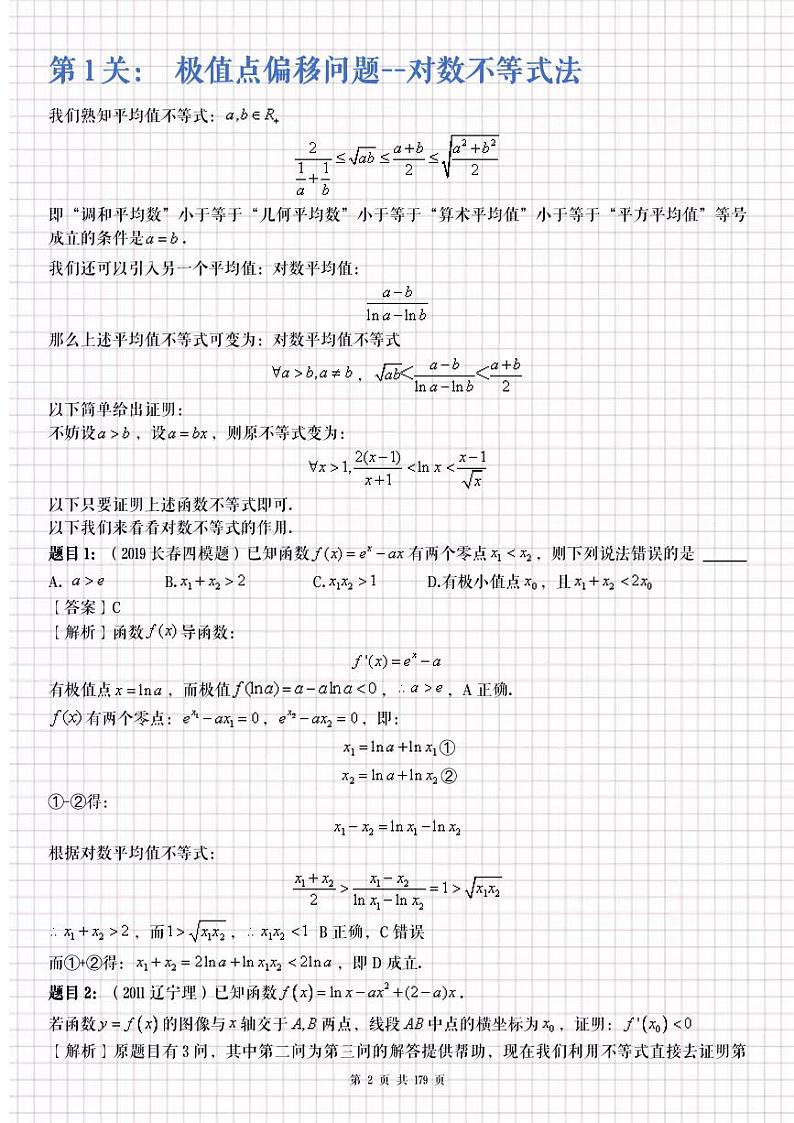 第1关： 极值点偏移问题--对数不等式法
我们熟知平均值不等式：a,b∈R₊
2/(1/a+1/b) ≤ √(ab) ≤ (a+b)/2 ≤ √((a²+b²)/2)
即“调和平均数”小于等于“几何平均数”小于等于“算术平均值”小于等于“平方平均值”等号
成立的条件是a=b．
我们还可以引入另一个平均值：对数平均值：
(a-b)/(ln a-ln b)
那么上述平均值不等式可变为：对数平均值不等式
∀a>b,a≠b，√(ab)<(a-b)/(ln a-ln b)<(a+b)/2
以下简单给出证明：
不妨设a>b，设a=bx，则原不等式变为：
∀x>1,2(x-1)/(x+1)<ln x<(x-1)/√x
以下只要证明上述函数不等式即可．
以下我们来看看对数不等式的作用．
题目1：（2019长春四模题）已知函数f(x)=eˣ-ax有两个零点x₁<x₂，则下列说法错误的是 _____
A. a>e B.x₁+x₂>2 C.x₁x₂>1 D.有极小值点x₀，且x₁+x₂<2x₀
【答案】C
【解析】函数f(x)导函数：
f'(x)=eˣ-a
有极值点x=ln a，而极值f(ln a)=a-a ln a<0，∴a>e，A正确．
f(x)有两个零点：e^{x₁}-ax₁=0，e^{x₂}-ax₂=0，即：
x₁=ln a+ln x₁①
x₂=ln a+ln x₂②
①-②得：
x₁-x₂=ln x₁-ln x₂
根据对数平均值不等式：
(x₁+x₂)/2>(x₁-x₂)/(ln x₁-ln x₂)=1>√(x₁x₂)
∴x₁+x₂>2，而1>√(x₁x₂)，∴x₁x₂<1 B正确，C错误
而①+②得：x₁+x₂=2ln a+ln x₁x₂<2ln a，即D成立．
题目2：（2011辽宁理）已知函数f(x)=ln x-ax²+(2-a)x．
若函数y=f(x)的图像与x轴交于A,B两点，线段AB中点的横坐标为x₀，证明：f'(x₀)<0
【解析】原题目有3问，其中第二问为第三问的解答提供帮助，现在我们利用不等式直接去证明第
第 2 页 共 179 页